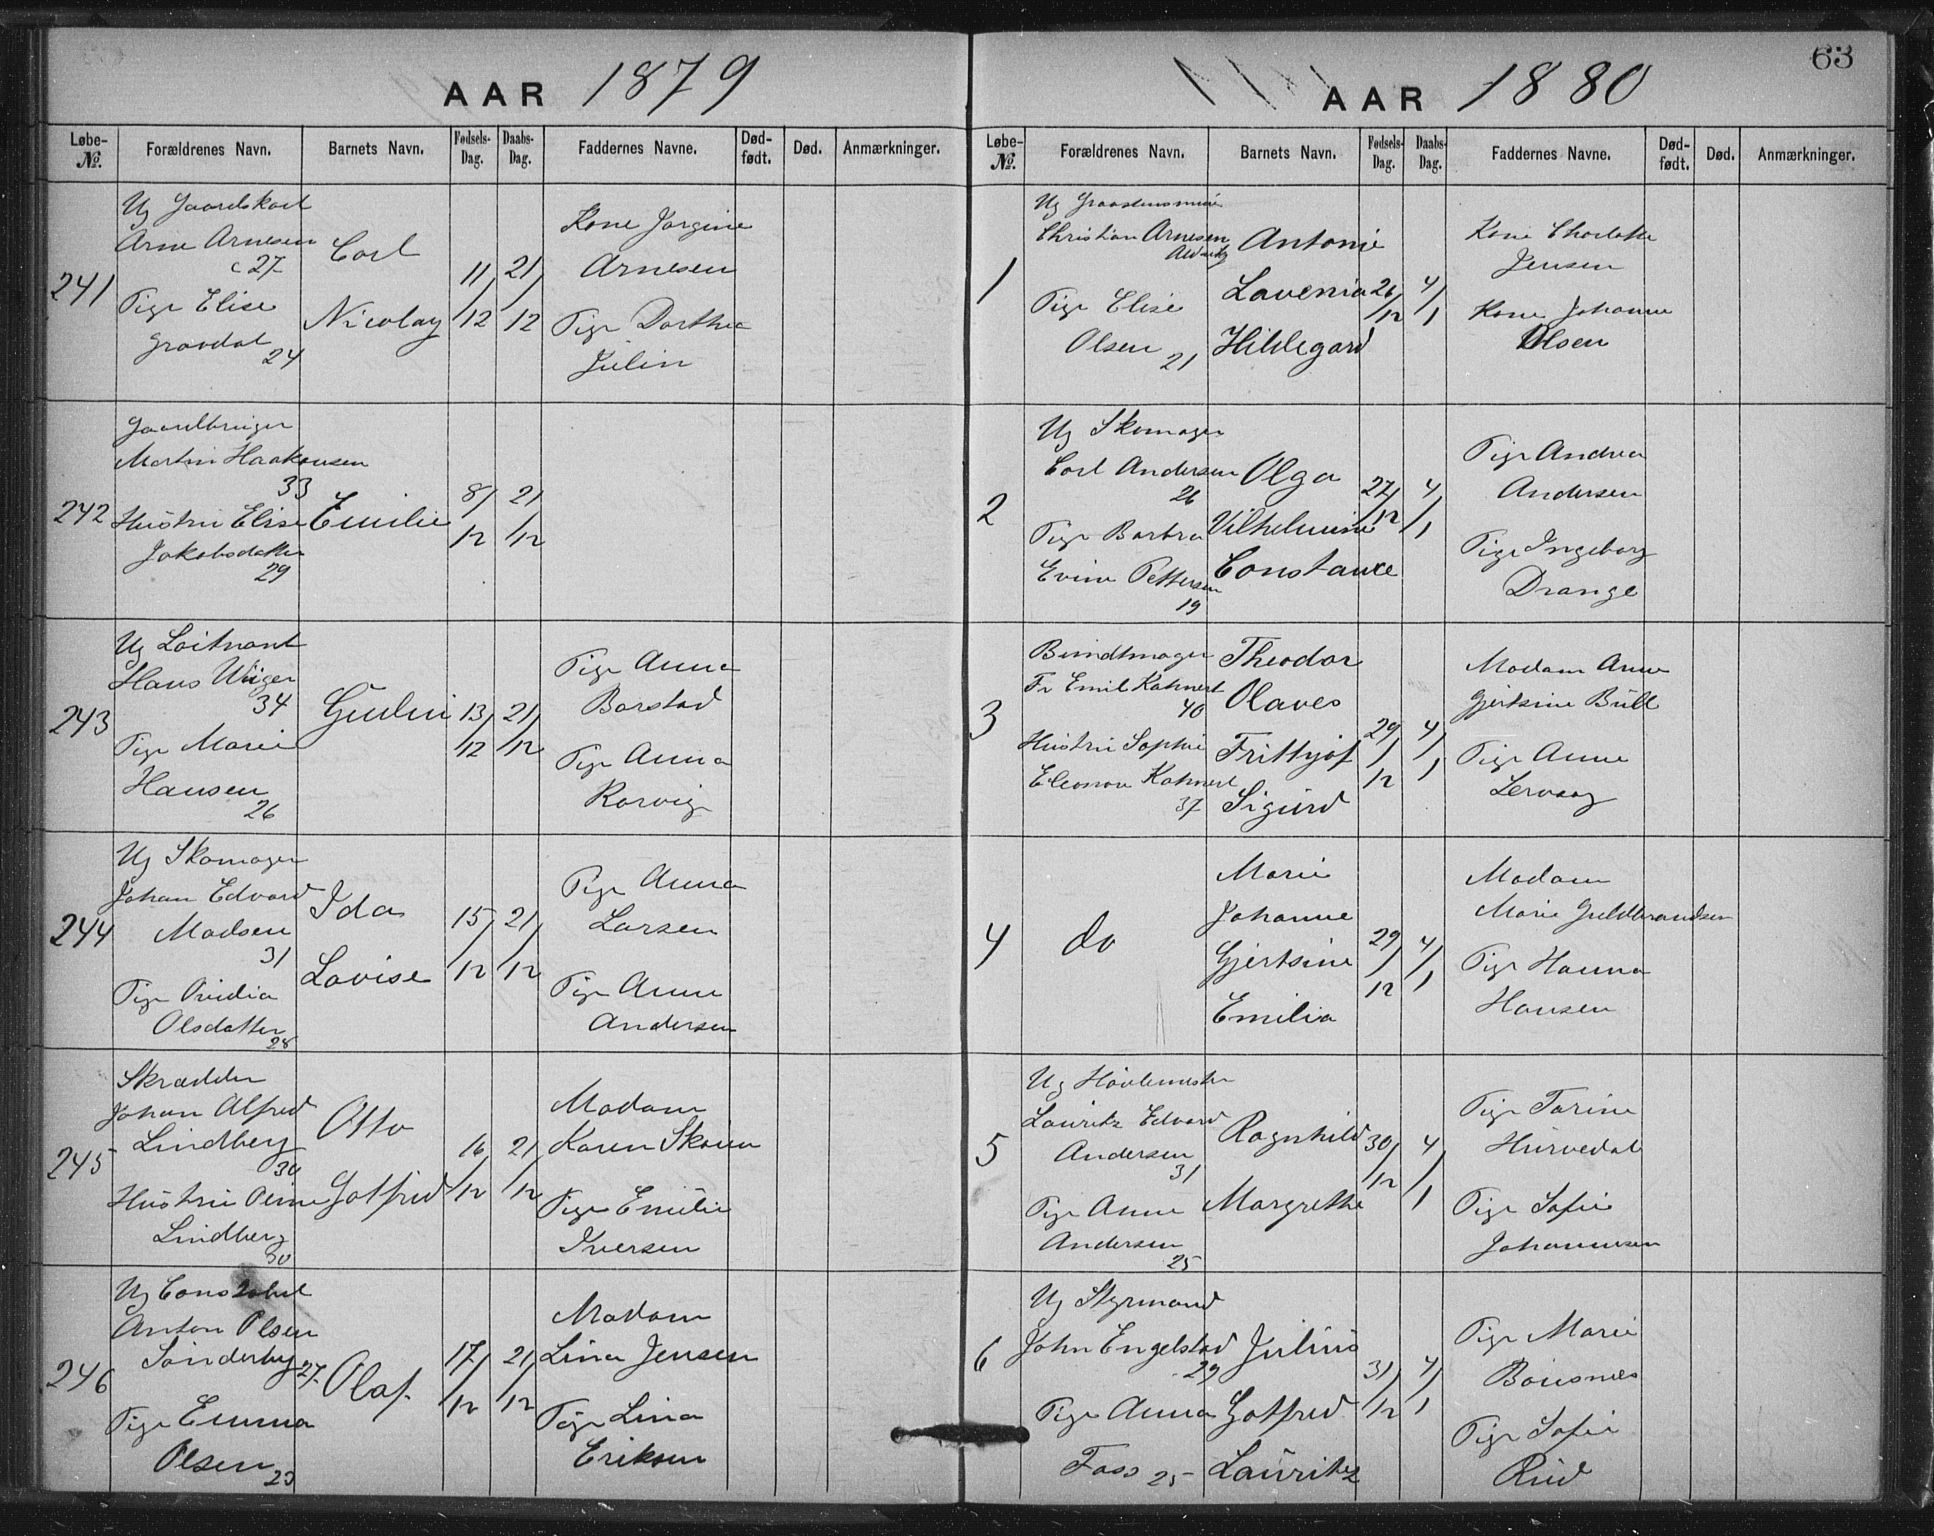 AAR 1879
Løbe-No.
Forældrenes Navn.
Barnets Navn.
Fødsels-Dag.
Daabs-Dag.
Faddernes Navne.
Død-født.
Død.
Anmærkninger.
241
Ug Gaardskarl
Arne Arnesen
c 27
Pige Elise
Gravdal
24
Carl
Nicolay
11/12
21/12
Kone Jorgine
Arnesen
Pige Dorthea
Julin
242
Martin Haakonsen
33
Hustru Elise
Jakobsdatter
29
Emilie
8/12
21/12
243
Ug Loitnant
Hans Wiiger
34
Pige Marie
Hansen
26
13/12
21/12
Pige Anna
Borstad
Pige Anna
Rorvig
244
Ug Skomager
Johan Edvard
Madsen
31
Pige Ovidia
Olsdatter
28
Ida
Lovise
15/12
21/12
Pige Anna
Larsen
Pige Anne
Andersen
245
Skrædder
Johan Alfred
Lindberg
30
Hustru
Lindberg
30
Otto
Gotfred
16/12
21/12
Madam
Karen Skouen
Pige Emilie
Iversen
246
Ug Constabel
Anton Olsen
Sønderby 27
Pige Emma
Olsen 23
Olaf
17/12
21/12
Madam
Lina Jensen
Pige Lina
Eriksen
63
AAR 1880
Løbe-No.
Forældrenes Navn.
Barnets Navn.
Fødsels-Dag.
Daabs-Dag.
Faddernes Navne.
Død-født.
Død.
Anmærkninger.
1
Christian Arnesen
Pige Elise
Olsen 21
Antonie
Lavenia
Hildegard
26/12
4/1
Kone Charlotte
Jensen
Kone Johanne
Olsen
2
Ug Skomager
Carl Andersen
26
Pige Barbra
Evine Pettersen
19
Olga
Vilhelmine
Constance
27/12
4/1
Pige Andrea
Andersen
Pige Ingeborg
Drange
3
Bundtmager
Fr Emil Kahnert
40
Hustru Sophie
Eleonora Kahnert
37
Theodor
Olaves
Frithjof
Sigurd
29/12
4/1
Madam Anne
Gjertsine Bull
Pige Anne
Lervaag
4
do
Marie
Johanne
Gjertsine
Emilia
29/12
4/1
Madam
Marie Guldbrandsen
Pige Hanna
Hansen
5
Ug Høvlemester
Lauritz Edvard
Andersen
31
Pige Anne
Andersen
25
Ragnhild
Margrethe
30/12
4/1
Pige Torine
Hurvedal
Pige Sofie
Johannesen
6
Ug Styrmand
John Engelstad
29
Pige Anna
Foss 25
Julius
Gotfred
Lauritz
31/12
4/1
Pige Marie
Pige Sofie
Rud